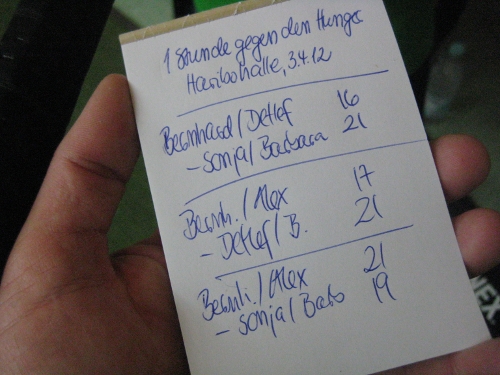 1 Stunde gegen den Hunger
Haribohalle, 3.4.12
Bernhard / Detlef 16
- Sonja / Barbara 21
Bernh. / Alex 17
- Detlef / B. 21
Bernh. / Alex 21
- Sonja / Barb 19